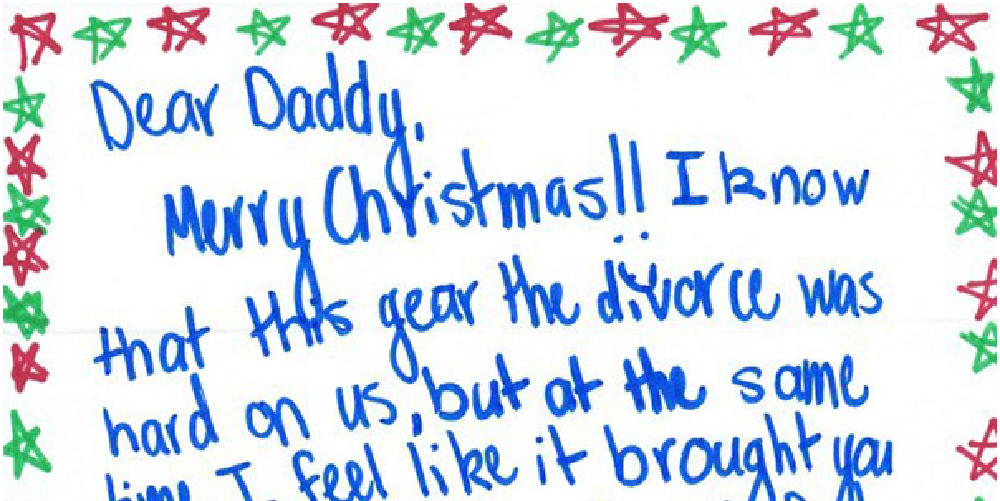 Dear Daddy,
Merry Christmas!! I know
that this year the divorce was
hard on us, but at the same
time I feel like it brought you